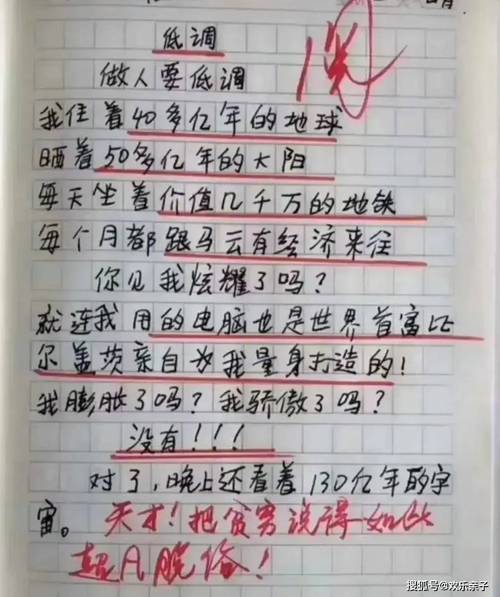 低调
做人要低调
我住着40多亿年的地球
晒着50多亿年的太阳
每天坐着价值几千万的地铁
每个月都跟马云有经济来往
你见我炫耀了吗？
就连我用的电脑也是世界首富比
尔盖茨亲自为我量身打造的！
我膨胀了吗？我骄傲了吗？
没有！！！
对了，晚上还看着130亿年的宇
宙。天才！把贫穷说得如此
超凡脱俗！
阅
搜狐号@欢乐亲子